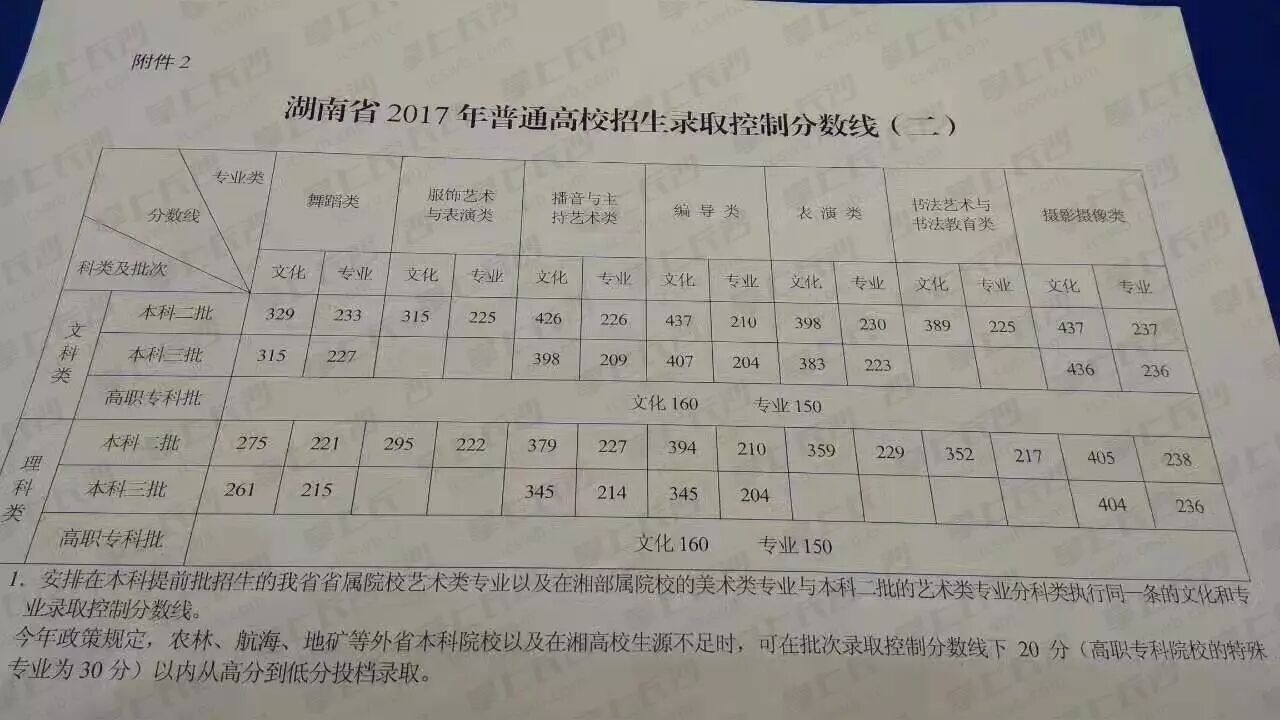 附件 2
湖南省 2017 年普通高校招生录取控制分数线（二）
专业类
分数线
科类及批次
舞蹈类 服饰艺术与表演类 播音与主持艺术类 编导类 表演类 书法艺术与书法教育类 摄影摄像类
文化 专业 文化 专业 文化 专业 文化 专业 文化 专业 文化 专业 文化 专业
文科类
本科二批 329 233 315 225 426 226 437 210 398 230 389 225 437 237
本科三批 315 227 398 209 407 204 383 223 436 236
高职专科批 文化 160 专业 150
理科类
本科二批 275 221 295 222 379 227 394 210 359 229 352 217 405 238
本科三批 261 215 345 214 345 204 404 236
高职专科批 文化 160 专业 150
1．安排在本科提前批招生的我省省属院校艺术类专业以及在湘部属院校的美术类专业与本科二批的艺术类专业分科类执行同一条的文化和专
业录取控制分数线。
今年政策规定，农林、航海、地矿等外省本科院校以及在湘高校生源不足时，可在批次录取控制分数线下 20 分（高职专科院校的特殊
专业为 30 分）以内从高分到低分投档录取。